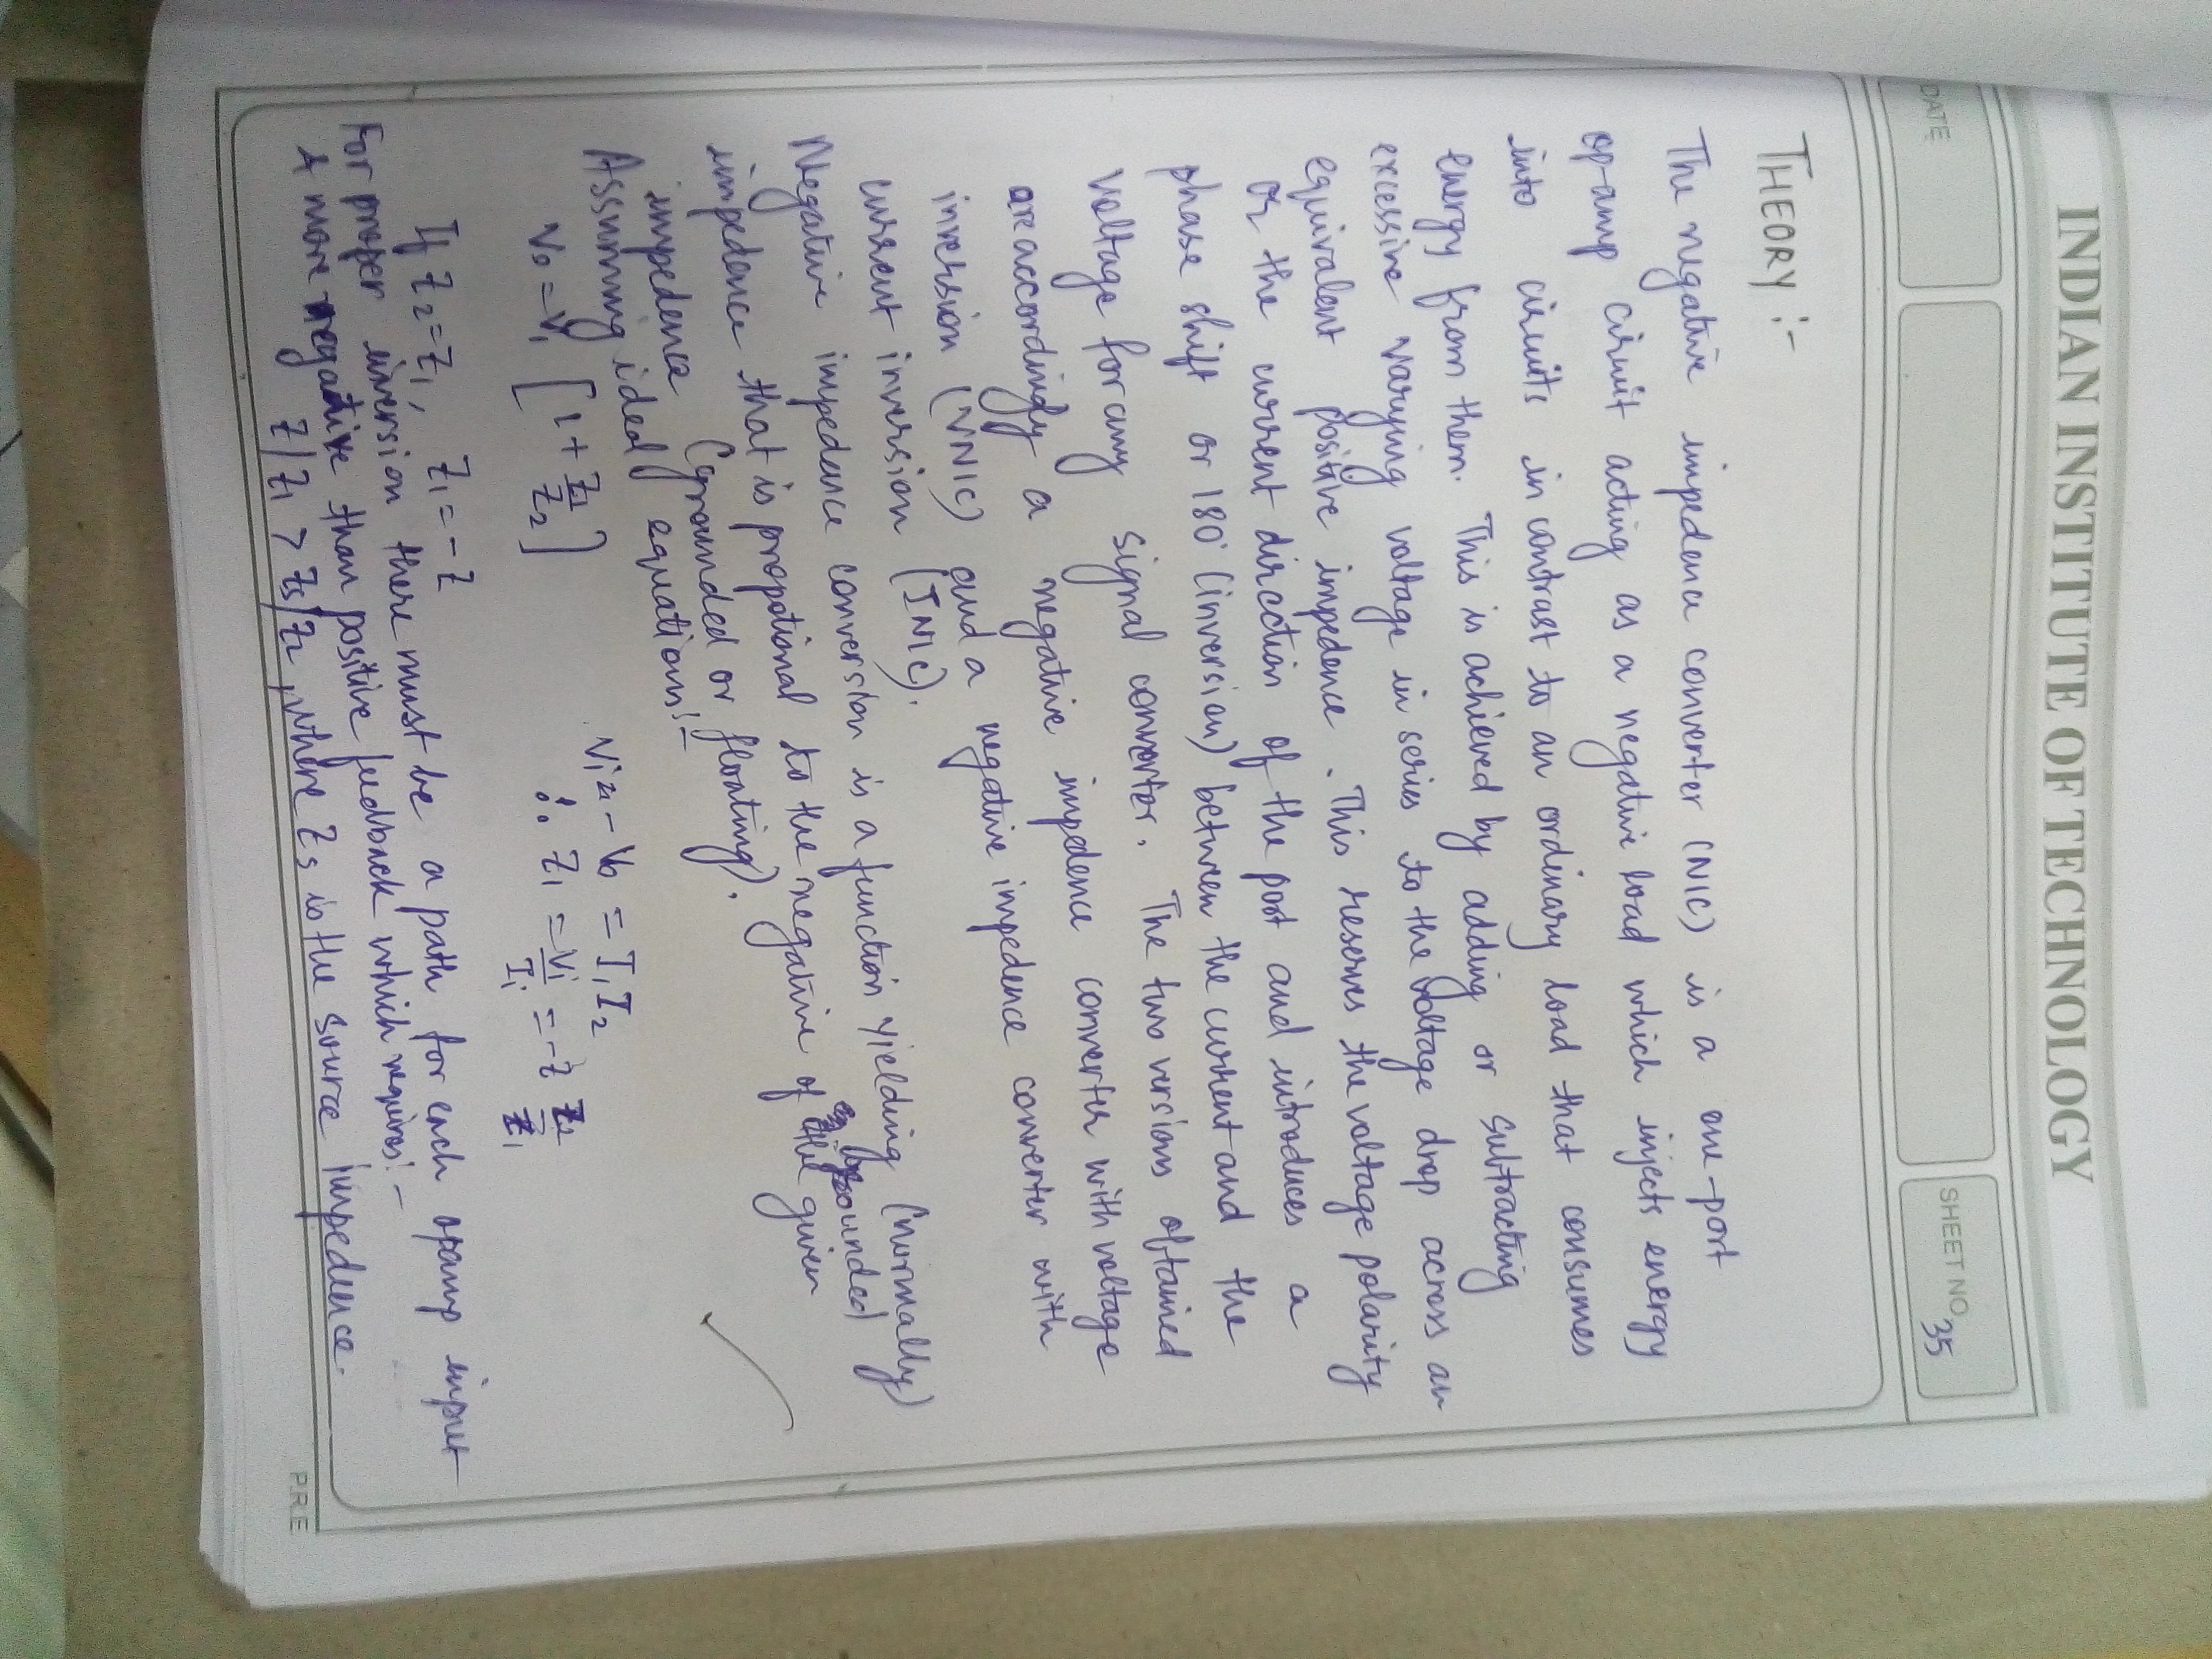 INDIAN INSTITUTE OF TECHNOLOGY
DATE
SHEET NO. 35
THEORY :-
The negative impedence converter (NIC) is a one-port
op-amp circuit acting as a negative load which injects energy
into circuits in contrast to an ordinary load that consumes
energy from them. This is achieved by adding or subtracting
excessive varying voltage in series to the voltage drop across an
equivalent positive impedence. This reserves the voltage polarity
or the current direction of the port and introduces a
phase shift or 180° (inversion) between the current and the
voltage for any signal converter. The two versions obtained
are accordingly a negative impedence converter with voltage
inversion (VNIC) and a negative impedence converter with
current inversion (INIC).
Negative impedence conversion is a function yielding (normally)
grounded
impedence that is propotional to the negative of the given
impedence (grounded or floating).
Assuming ideal equations:-
V₀ = V₁ [1 + Z₁/Z₂]
Vi - V₀ = I₁I₂
∴ Z₁ = Vi/Ii = -Z Z₂/Z₁
If Z₂ = Z₁, Z₁ = -Z
For proper inversion there must be a path for each opamp input
& more negative than positive feedback which requires:-
Z/Z₁ > Zs/Z₂, where Zs is the source impedence.
P.R.E